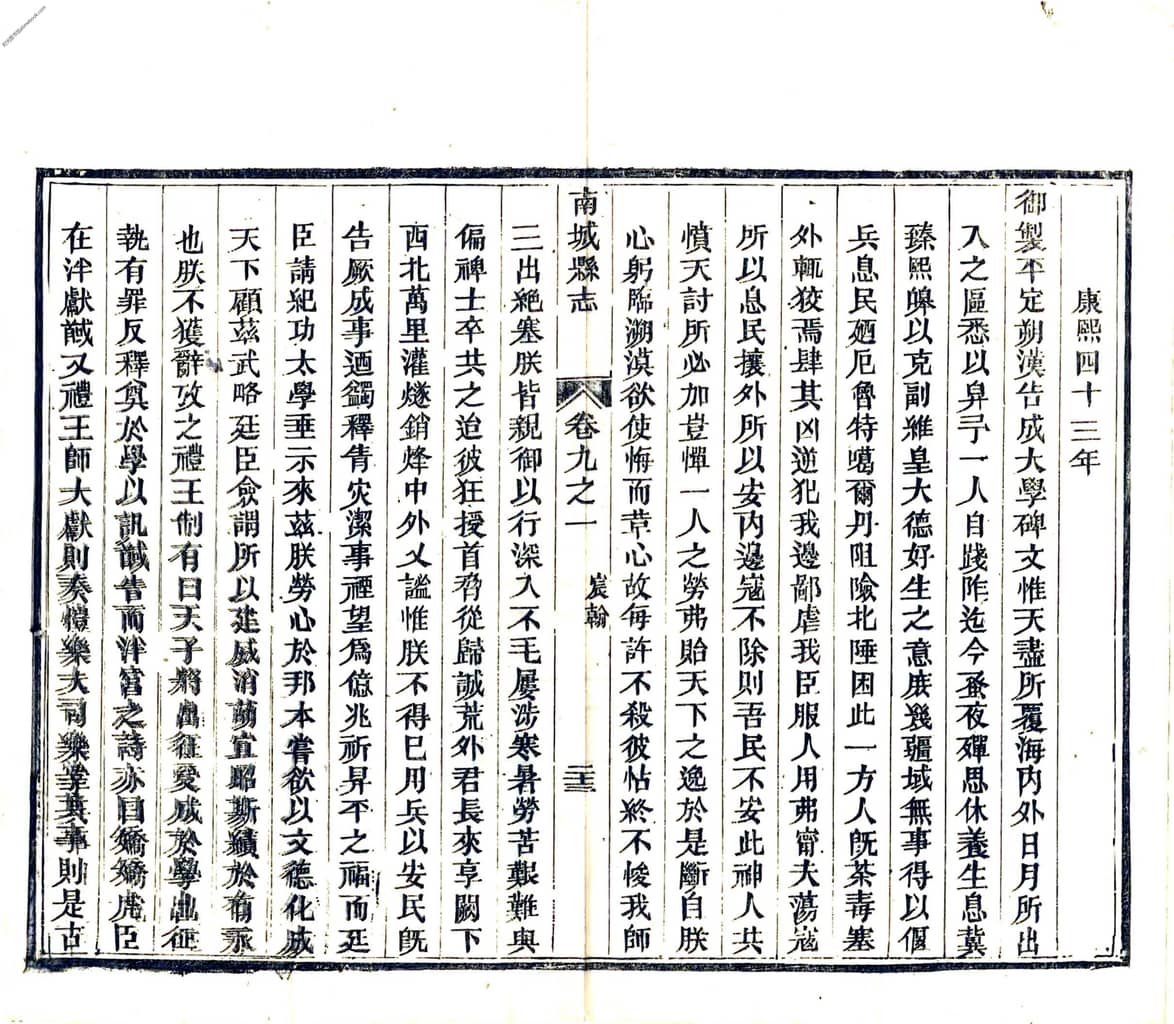 康熙四十三年
御製平定朔漠告成大學碑文惟天盡所覆海內外日月所出
入之區悉以畀予一人自踐阼迄今蚤夜殫思休養生息冀
臻熙皞以克副維皇大德好生之意庶幾疆域無事得以偃
兵息民廼厄魯特噶爾丹阻險北陲困此一方人旣荼毒塞
外輒狡焉肆其凶逆犯我邊鄙虐我臣服人用弗甯夫蕩寇
所以息民攘外所以安內邊寇不除則吾民不安此神人共
憤天討所必加豈憚一人之勞弗貽天下之逸於是斷自朕
心躬臨溯漠欲使悔而革心故每許不殺彼怙終不悛我師
南城縣志
卷九之一
宸翰
三出絶塞朕皆親御以行深入不毛屢涉寒暑勞苦艱難與
偏裨士卒共之迨彼狂授首脅從歸誠荒外君長來享闕下
西北萬里灌燧銷烽中外乂謐惟朕不得已用兵以安民旣
告厥成事迺蠲釋眚灾潔事禋望爲億兆祈昇平之福而廷
臣請紀功太學垂示來茲朕勞心於邦本嘗欲以文德化成
天下顧茲武略廷臣僉謂所以建威消萌宣昭斯績於有永
也朕不獲辭攷之禮王制有曰天子將出征受成於學出征
執有罪反釋奠於學以訊馘告而泮宮之詩亦曰矯矯虎臣
在泮獻馘又禮王師大獻則奏愷樂大司樂掌其事則是古